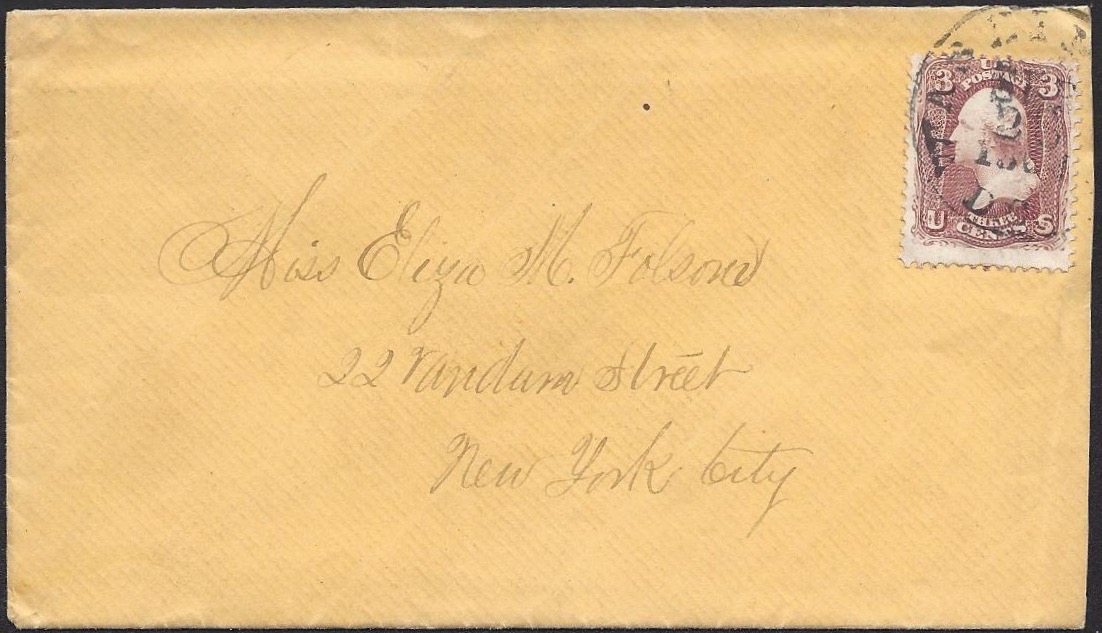 3 U 3
POSTAGE
Miss Eliza M. Folsom
22 Vandam Street
New York City
U THREE CENTS S